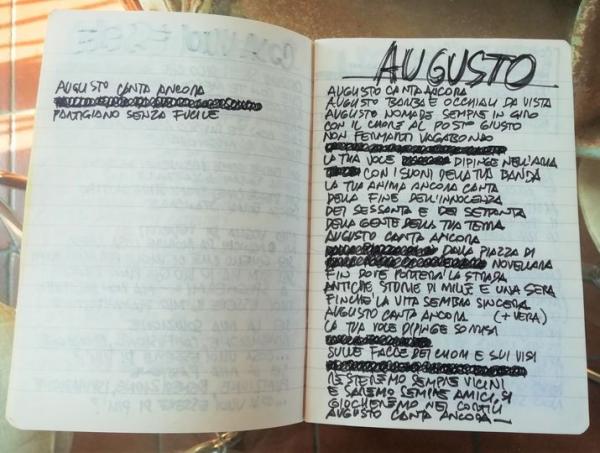 AUGUSTO CANTA ANCORA
PARTIGIANO SENZA FUCILE
AUGUSTO
AUGUSTO CANTA ANCORA
AUGUSTO BARBA E OCCHIALI DA VISTA
AUGUSTO NOMADE SEMPRE IN GIRO
CON IL CUORE AL POSTO GIUSTO
NON FERMARTI VAGABONDO
LA TUA VOCE DIPINGE NELL'ARIA
CON I SUONI DELLA TUA BANDA
LA TUA ANIMA ANCORA CANTA
DELLA FINE DELL'INNOCENZA
DEI SESSANTA E DEI SETTANTA
DELLA GENTE DELLA TUA TERRA
AUGUSTO CANTA ANCORA
DALLA PIAZZA DI
NOVELLARA
FIN DOVE PORTERÀ LA STRADA
ANTICHE STORIE DI MILLE E UNA SERA
FINCHÈ LA VITA SEMBRA SINCERA
AUGUSTO CANTA ANCORA (+ VERA)
LA TUA VOCE DIPINGE SORRISI
SULLE FACCE DEI CUORI E SUI VISI
RESTEREMO SEMPRE VICINI
E SAREMO SEMPRE AMICI, SI
GIOCHEREMO NEI CORTILI
AUGUSTO CANTA ANCORA